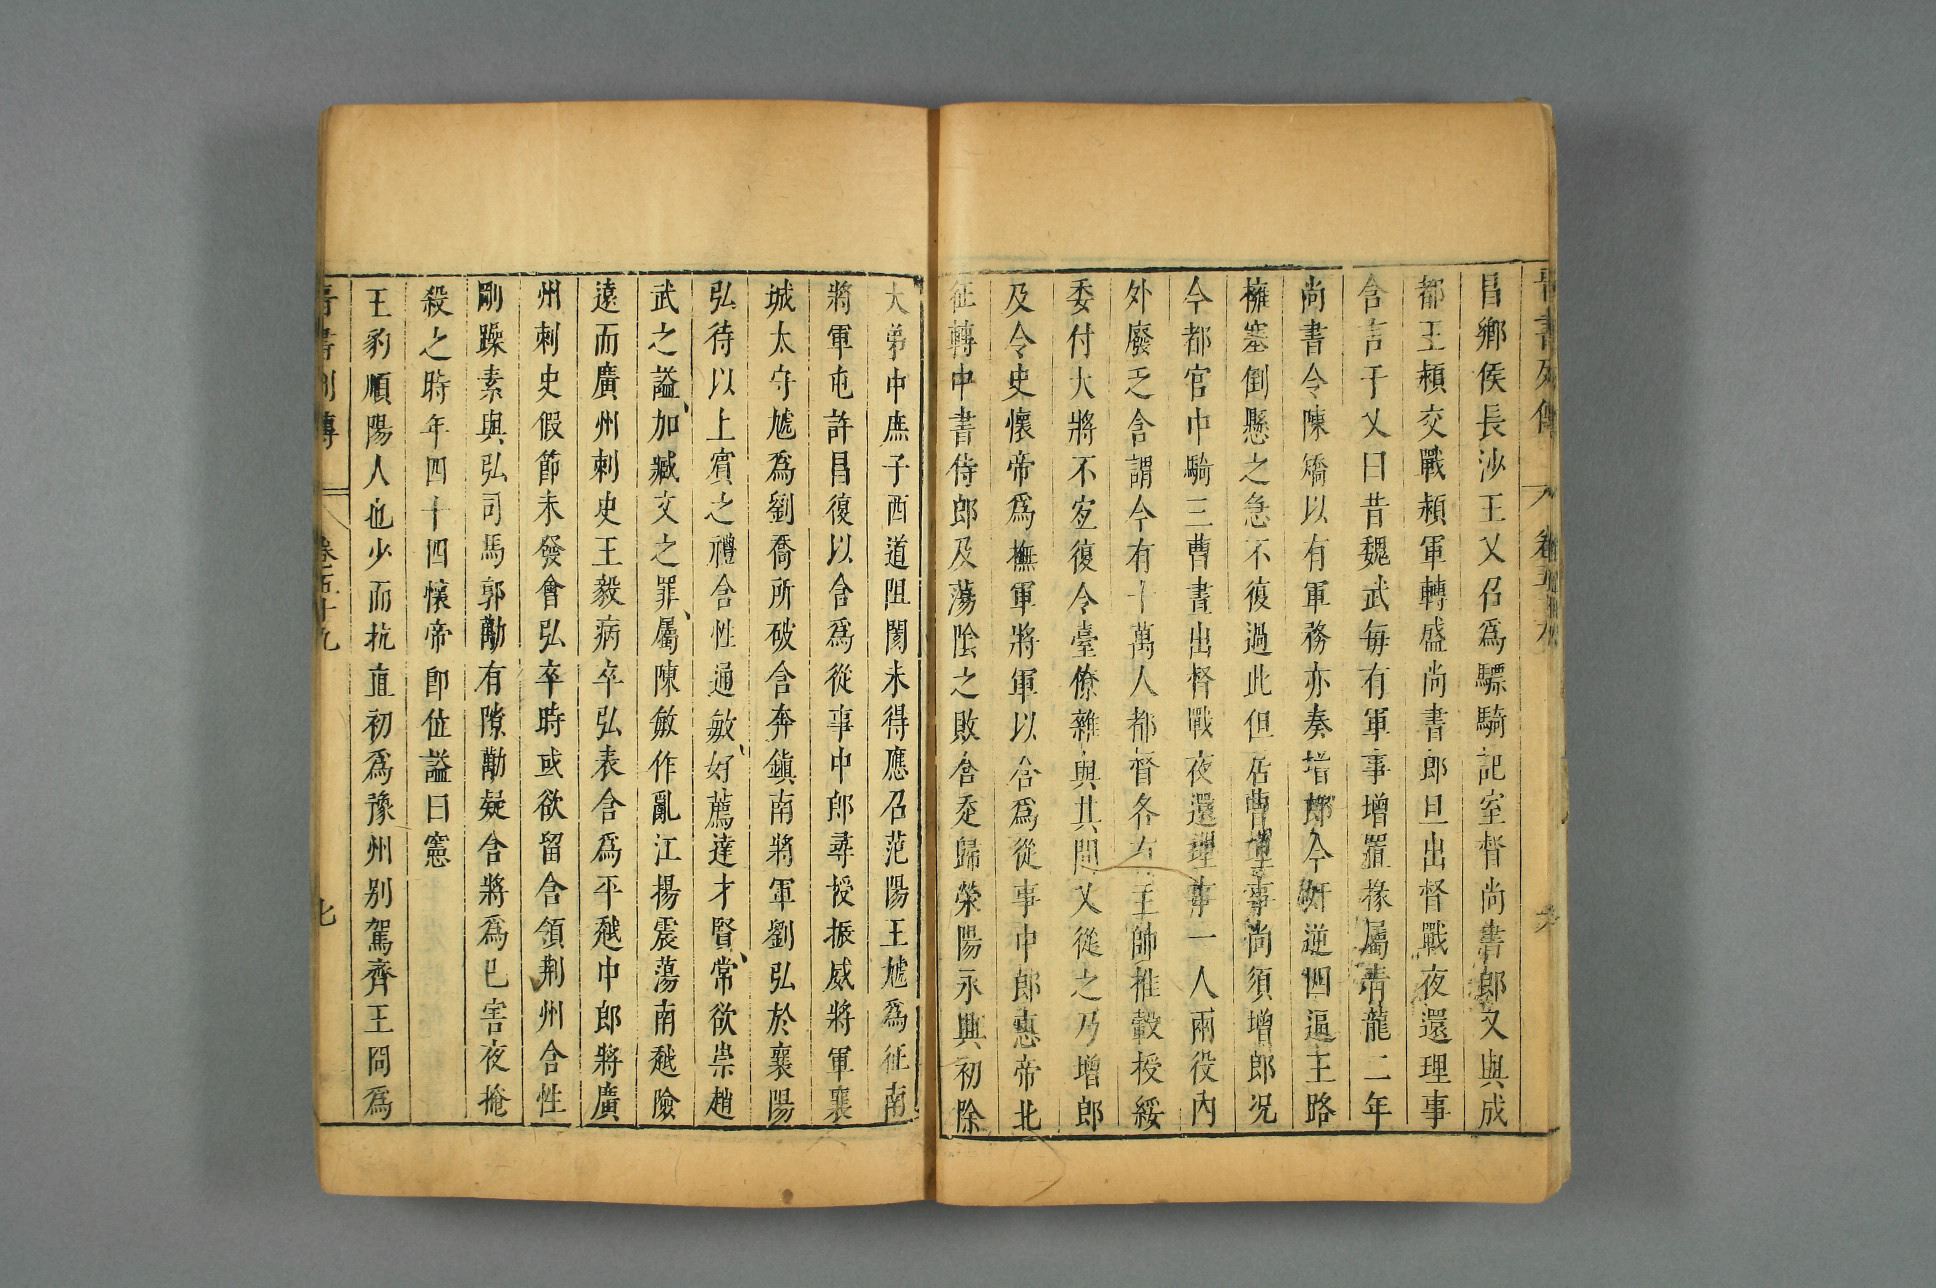 晉書列傳 卷五十九 六
昌鄉侯長沙王乂召爲驃騎記室督尚書郎乂與成
都王頴交戰頴軍轉盛尚書郎旦出督戰夜還理事
含言于乂曰昔魏武每有軍事增置掾屬青龍二年
尚書令陳矯以有軍務亦奏增郎今奸逆四逼王路
擁塞倒懸之急不復過此但居曹理事尚須增郎况
今都官中騎三曹晝出督戰夜還理事一人兩役內
外廢乏含謂今有十萬人都督各有主帥推轂授綏
委付大將不宐復令臺僚雜與其間乂從之乃增郎
及令史懷帝爲撫軍將軍以含爲從事中郎惠帝北
征轉中書侍郎及蕩陰之敗含走歸滎陽永興初除
太弟中庶子西道阻閡未得應召范陽王虓爲征南
將軍屯許昌復以含爲從事中郎尋授振威將軍襄
城太守虓爲劉喬所破含奔鎮南將軍劉弘於襄陽
弘待以上賓之禮含性通敏、好薦達才賢、常欲崇趙
武之謚、加臧文之罪、屬陳敏作亂江揚震蕩南越險
遠而廣州刺史王毅病卒弘表含爲平越中郎將廣
州刺史假節未發會弘卒時或欲留含領荆州含性
剛躁素與弘司馬郭勱有隙勱疑含將爲已害夜掩
殺之時年四十四懷帝即位謚曰憲
王豹順陽人也少而抗直初爲豫州別駕齊王冏爲
晉書列傳 卷五十九 七